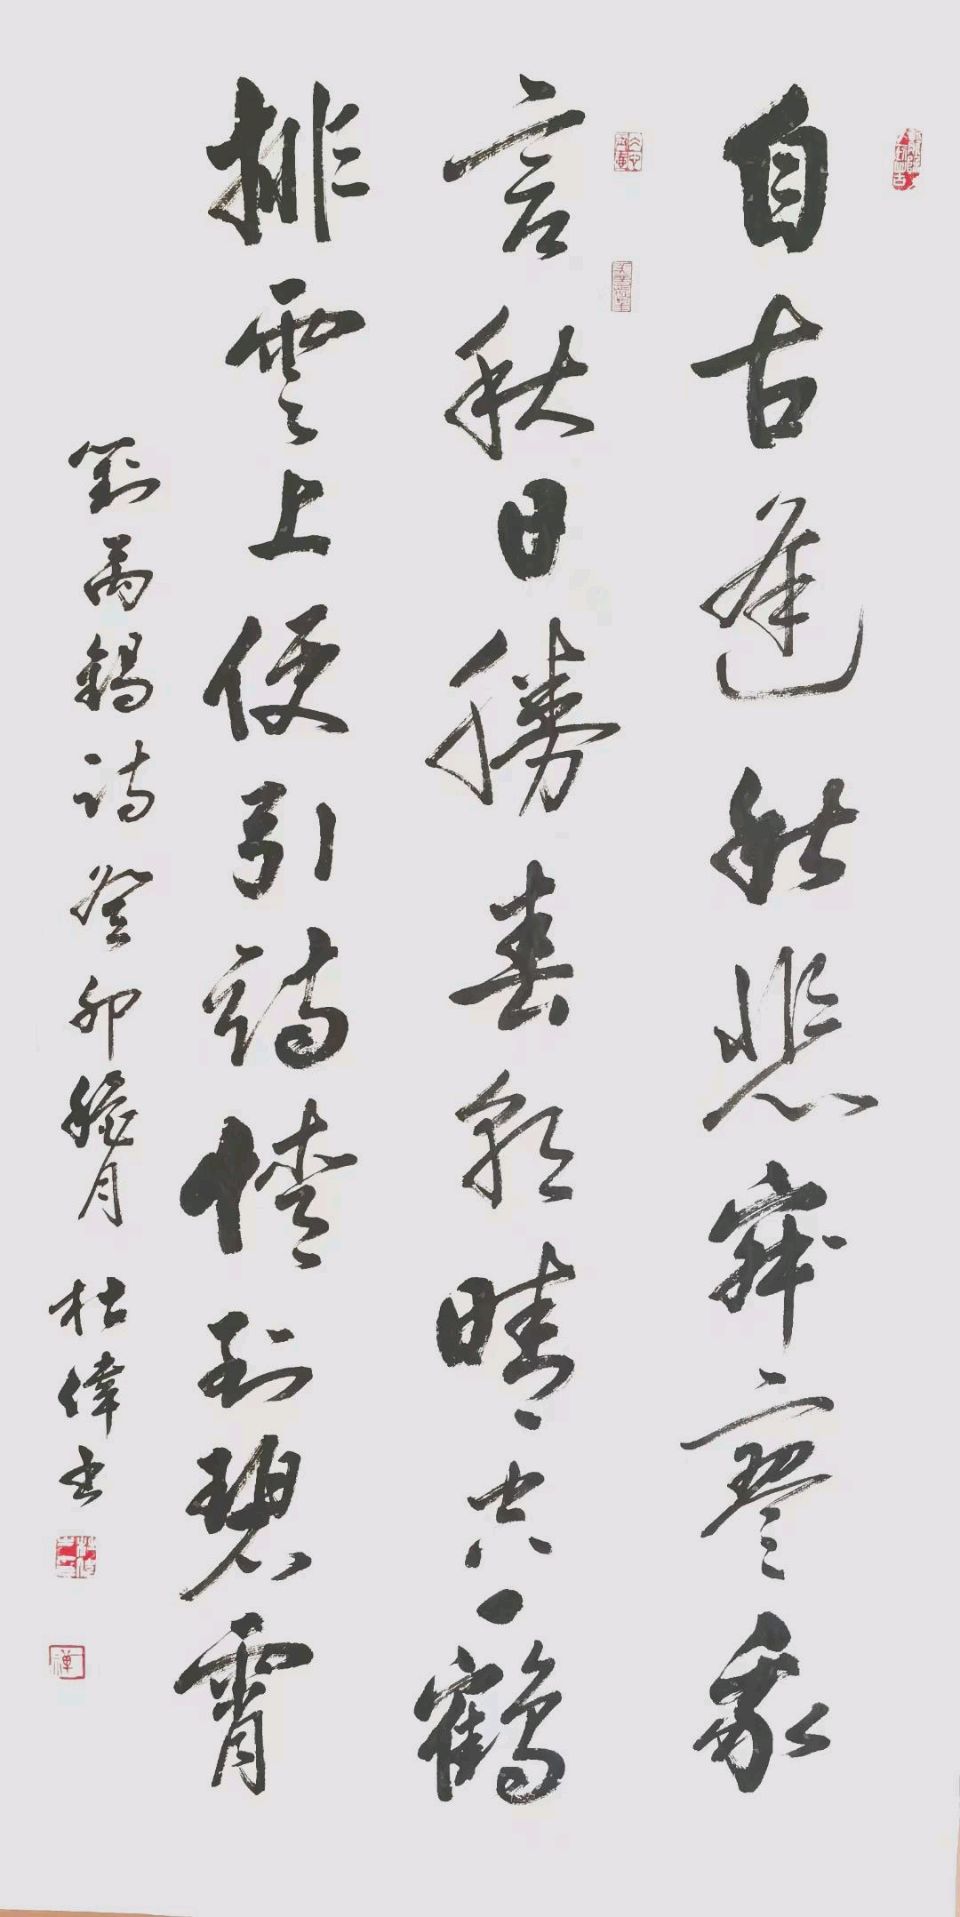 自古逢秋悲寂寥我
言秋日勝春朝晴空一鶴
排雲上便引詩情到碧霄
劉禹錫詩 癸卯臘月 杜偉書